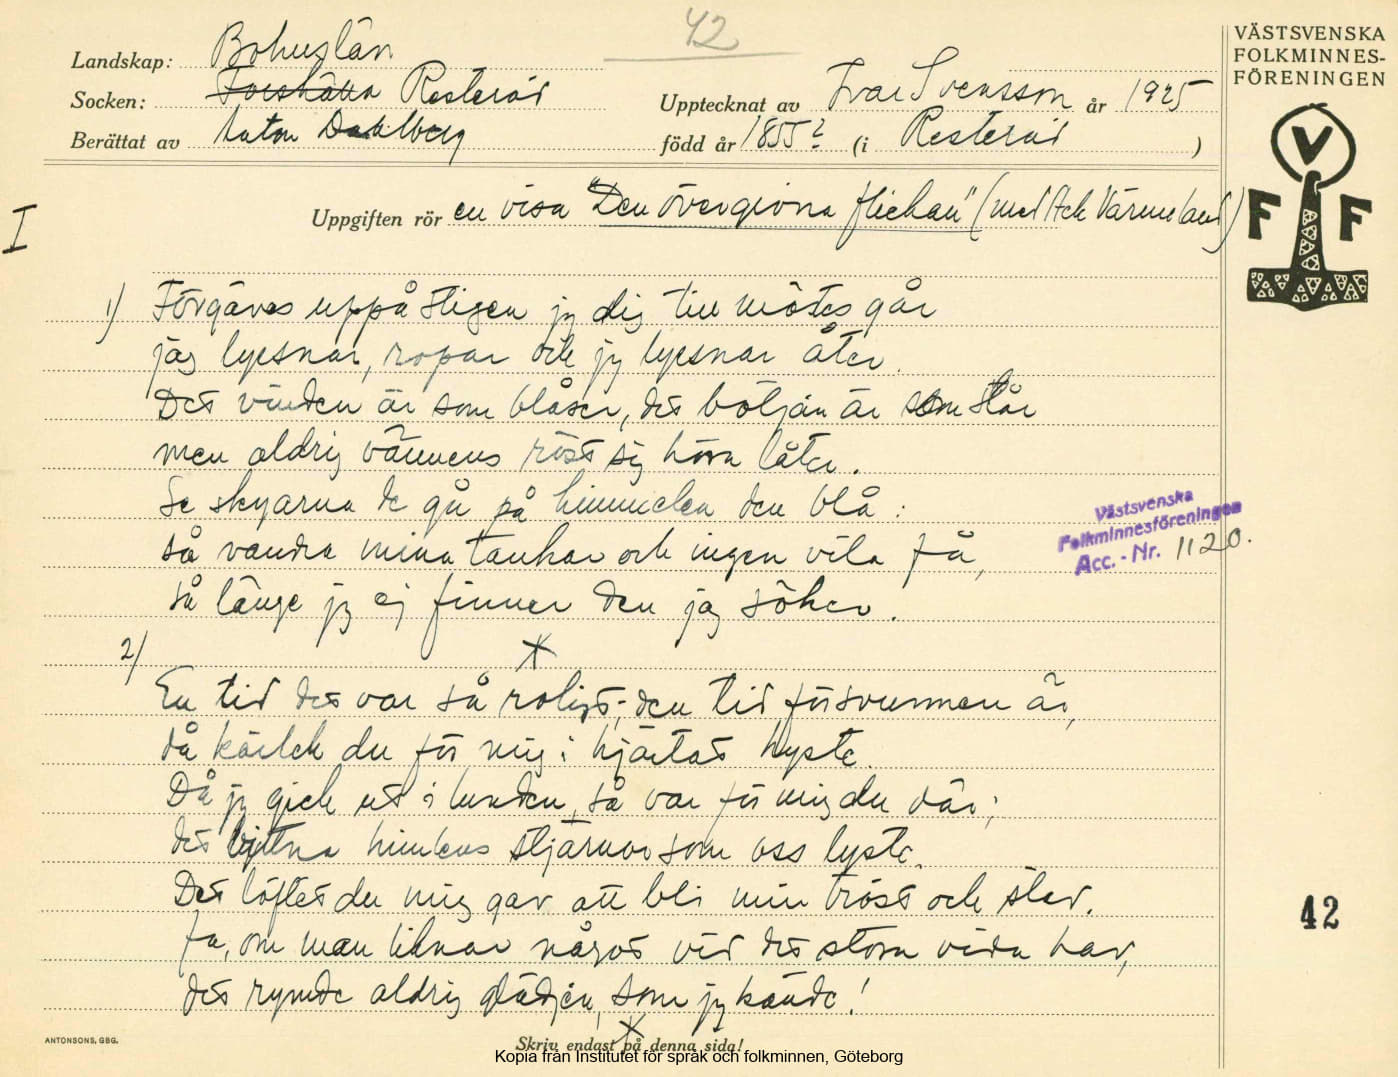 42
Landskap: Bohuslän
Socken: Resteröd
Upptecknat av Ivar Svensson år 1925
Berättat av Anton Dahlberg
född år 1855? (i Resteröd)
VÄSTSVENSKA
FOLKMINNES-
FÖRENINGEN
V
F F
I
Uppgiften rör en visa "Den övergivna flickan" (mel Ack Värmeland)
1) Förgäves uppå stigen jg dig till mötes går
jag lyssnar, ropar och jg lyssnar åter.
Det vinden är som blåser, det böljan är som slår
men aldrig vännens röst sig höra låter.
Se skyarna de gå på himmelen den blå:
så vandra mina tankar och ingen vila få,
så länge jg ej finner den jag söker.
Västsvenska
Folkminnesföreningen
Acc.-Nr. 1120.
2)
En tid det var så roligt; den tid försvunnen är,
då kärlek du för mig i hjärtat hyste.
Då jg gick ut i lunden, så var för mig du där;
det himlens stjärnor som oss lyste.
Det löftet du mig gav att bli min tröst och stav.
Ja, om man liknar något vid det stora vida hav,
det rymde aldrig glädjen, som jg kände!
42
ANTONSONS, GBG.
Skriv endast på denna sida!
Kopia från Institutet för språk och folkminnen, Göteborg